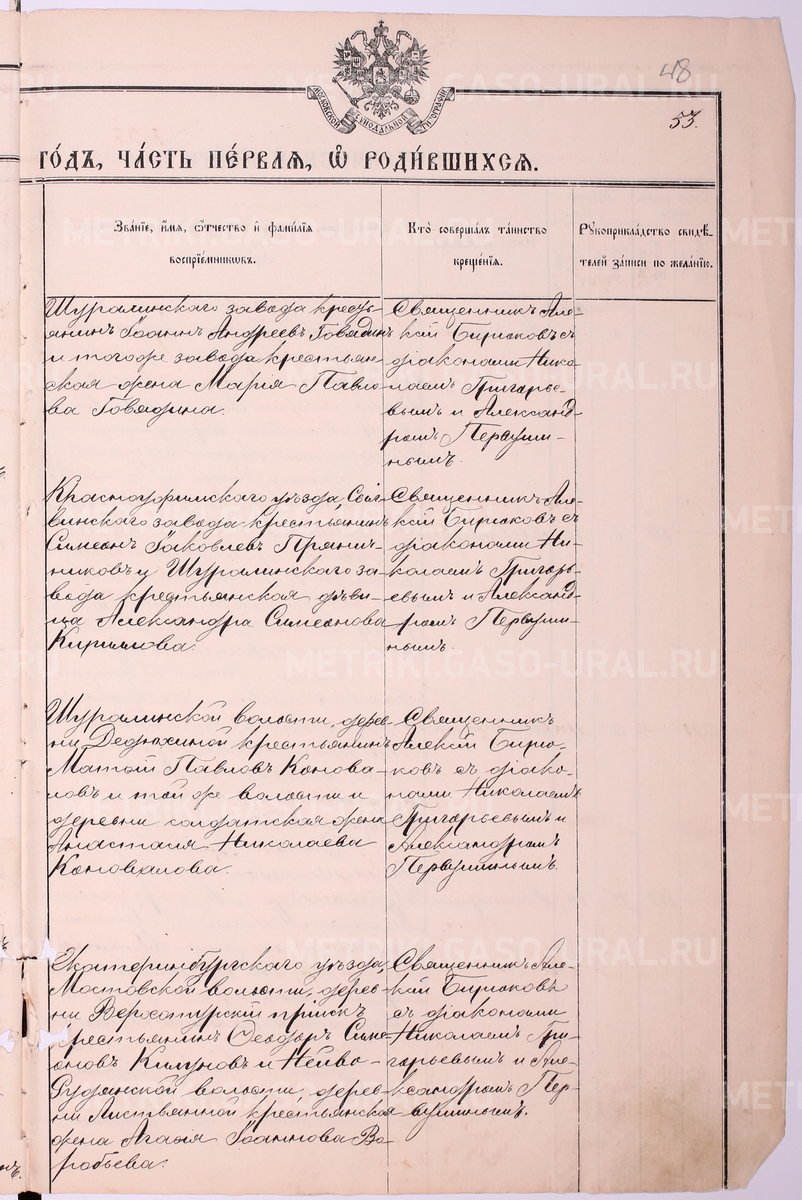 48
53.
МОСКОВСКОЙ СѴНОДАЛЬНОЙ ТѴПОГРАФІИ
ГОДЪ, ЧАСТЬ ПЕРВАЯ, Ѡ РОДИВШИХСЯ.
Званіе, имя, отчество и фамилія
воспріемниковъ.
Кто совершалъ таинство
крещенія.
Рукоприкладство свидѣ-
телей записи по желанію.
Шуралинскаго завода кресть-
янинъ Іоаннъ Андреевъ Говядинъ
и тогоже завода крестьян-
ская жена Мария Павло-
ва Говядина.
Священникъ Але-
ксій Бирюковъ съ
діаконами Нико-
лаемъ Григорье-
вымъ и Александ-
ромъ Первуши-
нымъ.
Красноуфимскаго уѣзда,
винскаго завода крестьянинъ
Симеонъ Іаковлевъ Пранич-
никовъ и Шуралинскаго за-
вода крестьянская дѣви-
ца Александра Симеонова
Кирилова.
Священникъ Але-
ксій Бирюковъ съ
діаконами Ни-
колаемъ Григорь-
евымъ и Александ-
ромъ Первуши-
нымъ.
Шуралинской волости, дерев-
ни Дедюхиной крестьянинъ
Матѳій Павловъ Конова-
ловъ и той же волости и
деревни солдатская жена
Анастасія Николаева
Коновалова.
Священникъ
Алексій Бирю-
ковъ съ діако-
нами Николаемъ
Григорьевымъ и
Александромъ
Первушинымъ.
Екатеринбургскаго уѣзда,
Мостовской волости, дерев-
ни Верхотурскій пріискъ
крестьянинъ Ѳеодоръ Симе-
оновъ Килуновъ и Нейво-
Рудянской волости, дерев-
ни Листвянной крестьянская
жена Агаѳья Іоаннова Во-
робьева.
Священникъ Але-
ксій Бирюковъ
съ діаконами
Николаемъ Гри-
горьевымъ и Але-
ксандромъ Пер-
вушинымъ.
METRIKI.GASO-URAL.RU